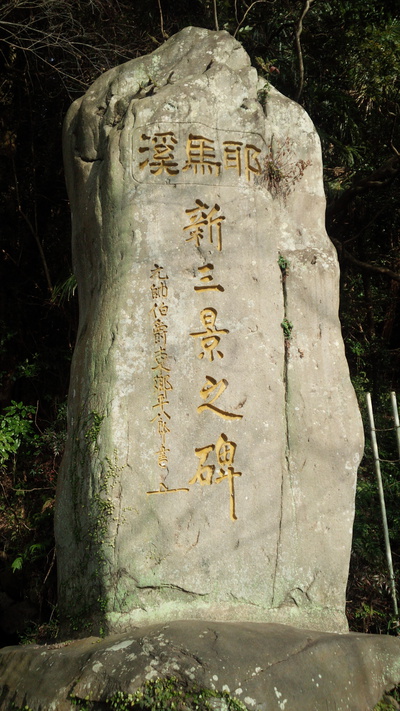 耶馬溪
新三景之碑
元帥伯爵東郷平八郎書